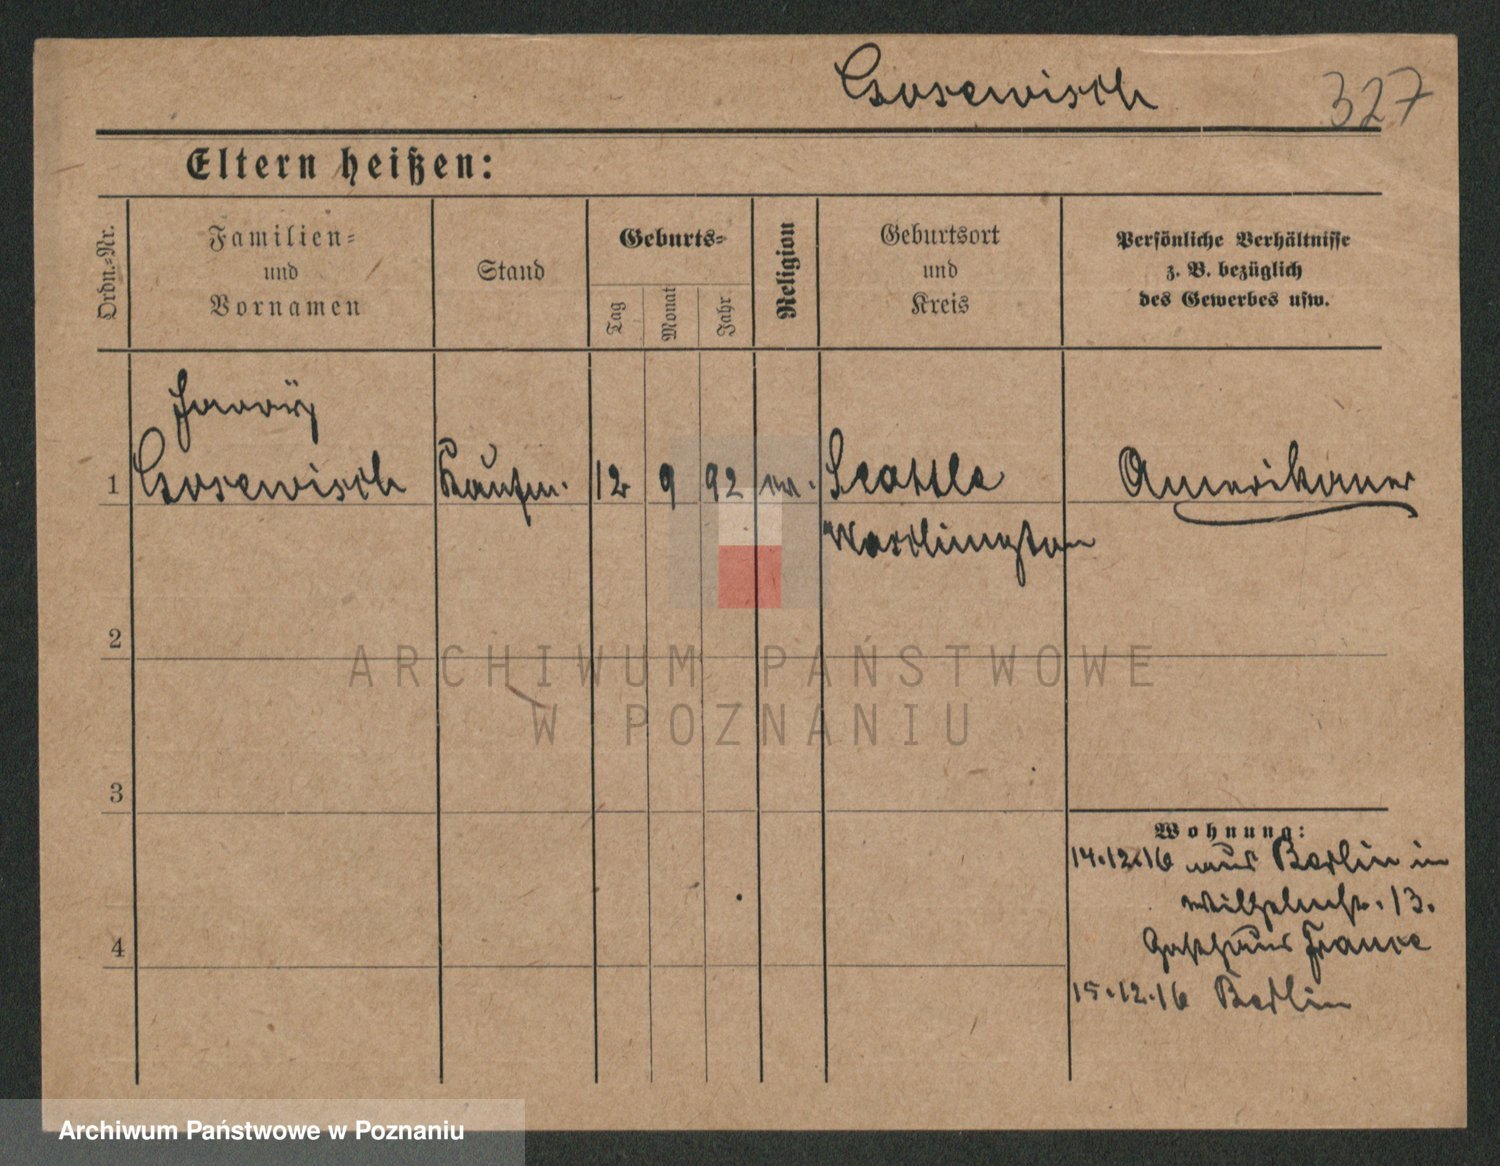 Gosewisch 327
Eltern heißen:
Ordn.-Nr.
Familien-
und
Vornamen
Stand
Geburts-
Tag
Monat
Jahr
Religion
Geburtsort
und
Kreis
Persönliche Verhältnisse
z. B. bezüglich
des Gewerbes usw.
1 Gosewisch Kaufm. 12 9 92 Seattle Amerikaner
Washington
2
3
4
Wohnung:
14.12.16 aus Berlin in
Wilhelmstr. 13.
Gasthaus France
15.12.16 Berlin
ARCHIWUM PAŃSTWOWE
W POZNANIU
Archiwum Państwowe w Poznaniu